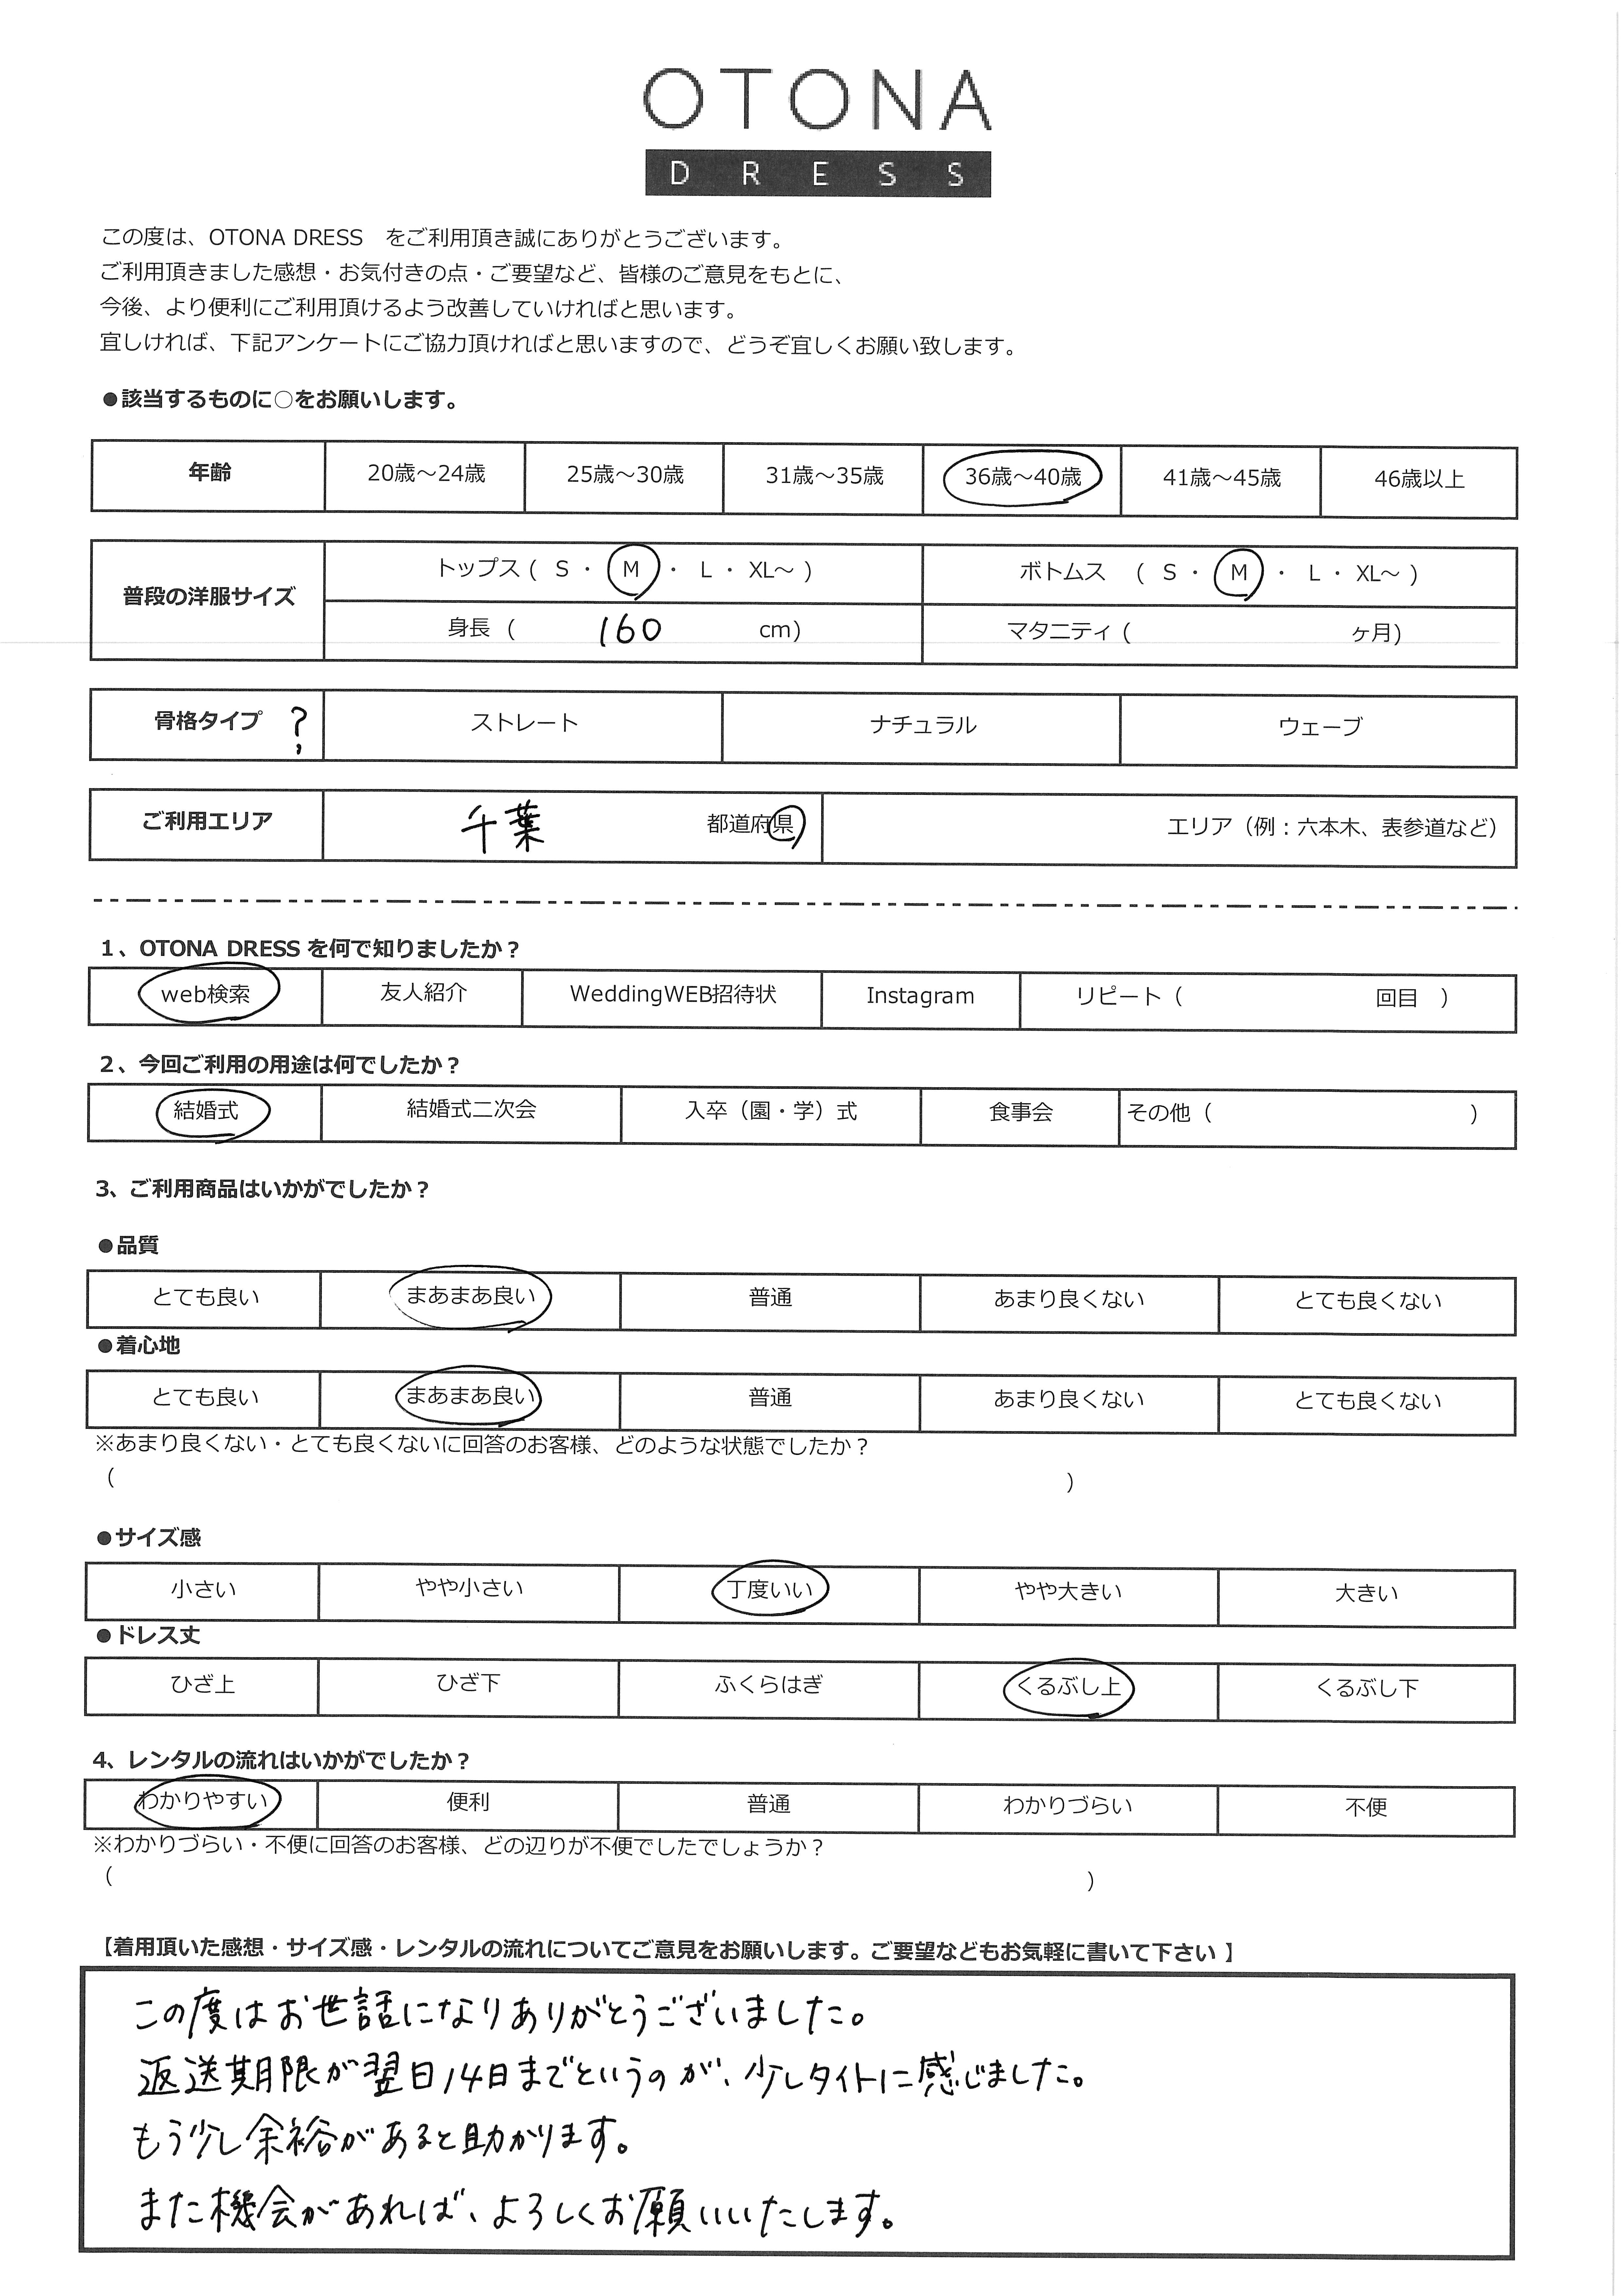 OTONA
DRESS
この度は、OTONA DRESS　をご利用頂き誠にありがとうございます。
ご利用頂きました感想・お気付きの点・ご要望など、皆様のご意見をもとに、
今後、より便利にご利用頂けるよう改善していければと思います。
宜しければ、下記アンケートにご協力頂ければと思いますので、どうぞ宜しくお願い致します。
●該当するものに○をお願いします。
年齢 20歳～24歳 25歳～30歳 31歳～35歳 36歳～40歳 41歳～45歳 46歳以上
普段の洋服サイズ トップス ( S ・ M ・ L ・ XL～ ) ボトムス ( S ・ M ・ L ・ XL～ )
身長 ( 160 cm) マタニティ ( ヶ月)
骨格タイプ ? ストレート ナチュラル ウェーブ
ご利用エリア 千葉 都道府県 エリア（例：六本木、表参道など）
1、OTONA DRESS を何で知りましたか？
web検索 友人紹介 WeddingWEB招待状 Instagram リピート（ 回目 ）
2、今回ご利用の用途は何でしたか？
結婚式 結婚式二次会 入卒（園・学）式 食事会 その他（ ）
3、ご利用商品はいかがでしたか？
●品質
とても良い まあまあ良い 普通 あまり良くない とても良くない
●着心地
とても良い まあまあ良い 普通 あまり良くない とても良くない
※あまり良くない・とても良くないに回答のお客様、どのような状態でしたか？
（ ）
●サイズ感
小さい やや小さい 丁度いい やや大きい 大きい
●ドレス丈
ひざ上 ひざ下 ふくらはぎ くるぶし上 くるぶし下
4、レンタルの流れはいかがでしたか？
わかりやすい 便利 普通 わかりづらい 不便
※わかりづらい・不便に回答のお客様、どの辺りが不便でしたでしょうか？
（ ）
【着用頂いた感想・サイズ感・レンタルの流れについてご意見をお願いします。ご要望などもお気軽に書いて下さい 】
この度はお世話になりありがとうございました。
返送期限が翌日14日までというのが、少しタイトに感じました。
もう少し余裕があると助かります。
また機会があれば、よろしくお願いいたします。